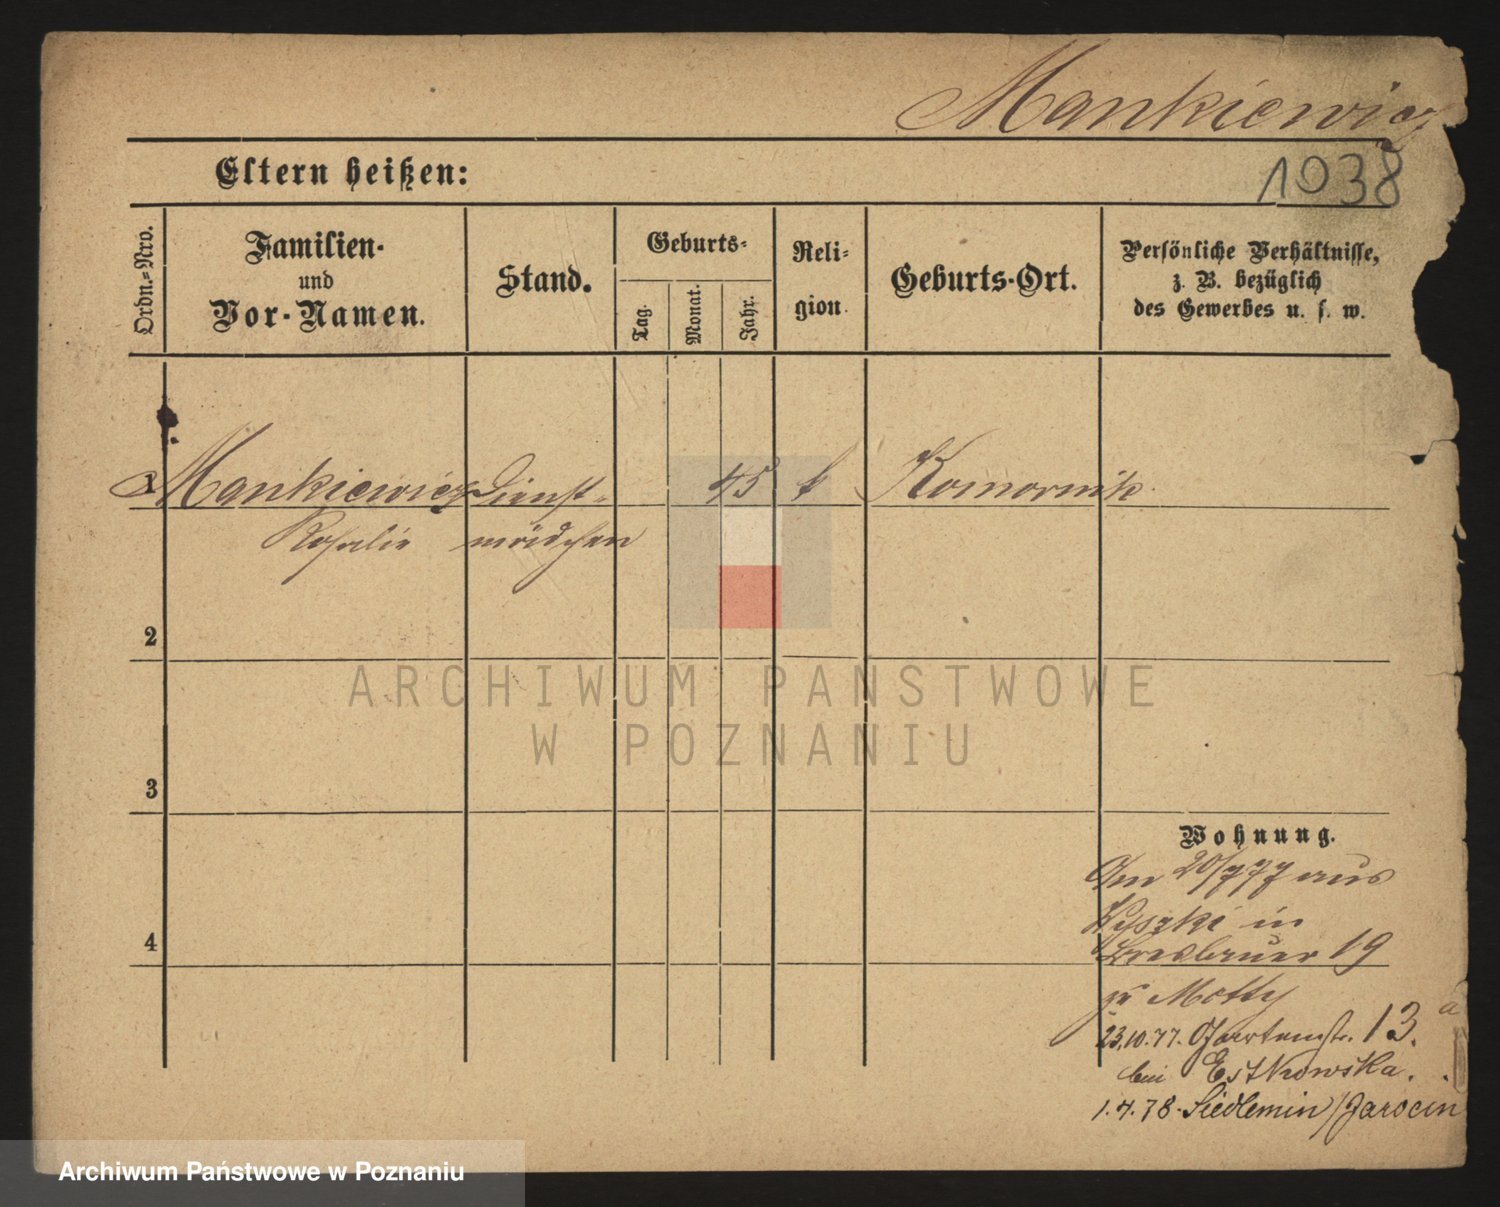 Mankiewicz
Eltern heißen:
1038
Ordn.-Nro.
Familien-
und
Vor-Namen.
Stand.
Geburts-
Tag.
Monat.
Jahr.
Reli-
gion
Geburts-Ort.
Persönliche Verhältnisse,
z. B. bezüglich
des Gewerbes u. s. w.
1 Mankiewicz Dienst- 45 k Komornik
Rosalie mädchen
2
3
4
Wohnung.
Am 20/7 77 aus
Wyszki in
19
zu Motty
23.10.77. Gartenstr. 13. a
bei Estkowska.
1.4.78. Siedlemin / Jarocin
ARCHIWUM PAŃSTWOWE
W POZNANIU
Archiwum Państwowe w Poznaniu